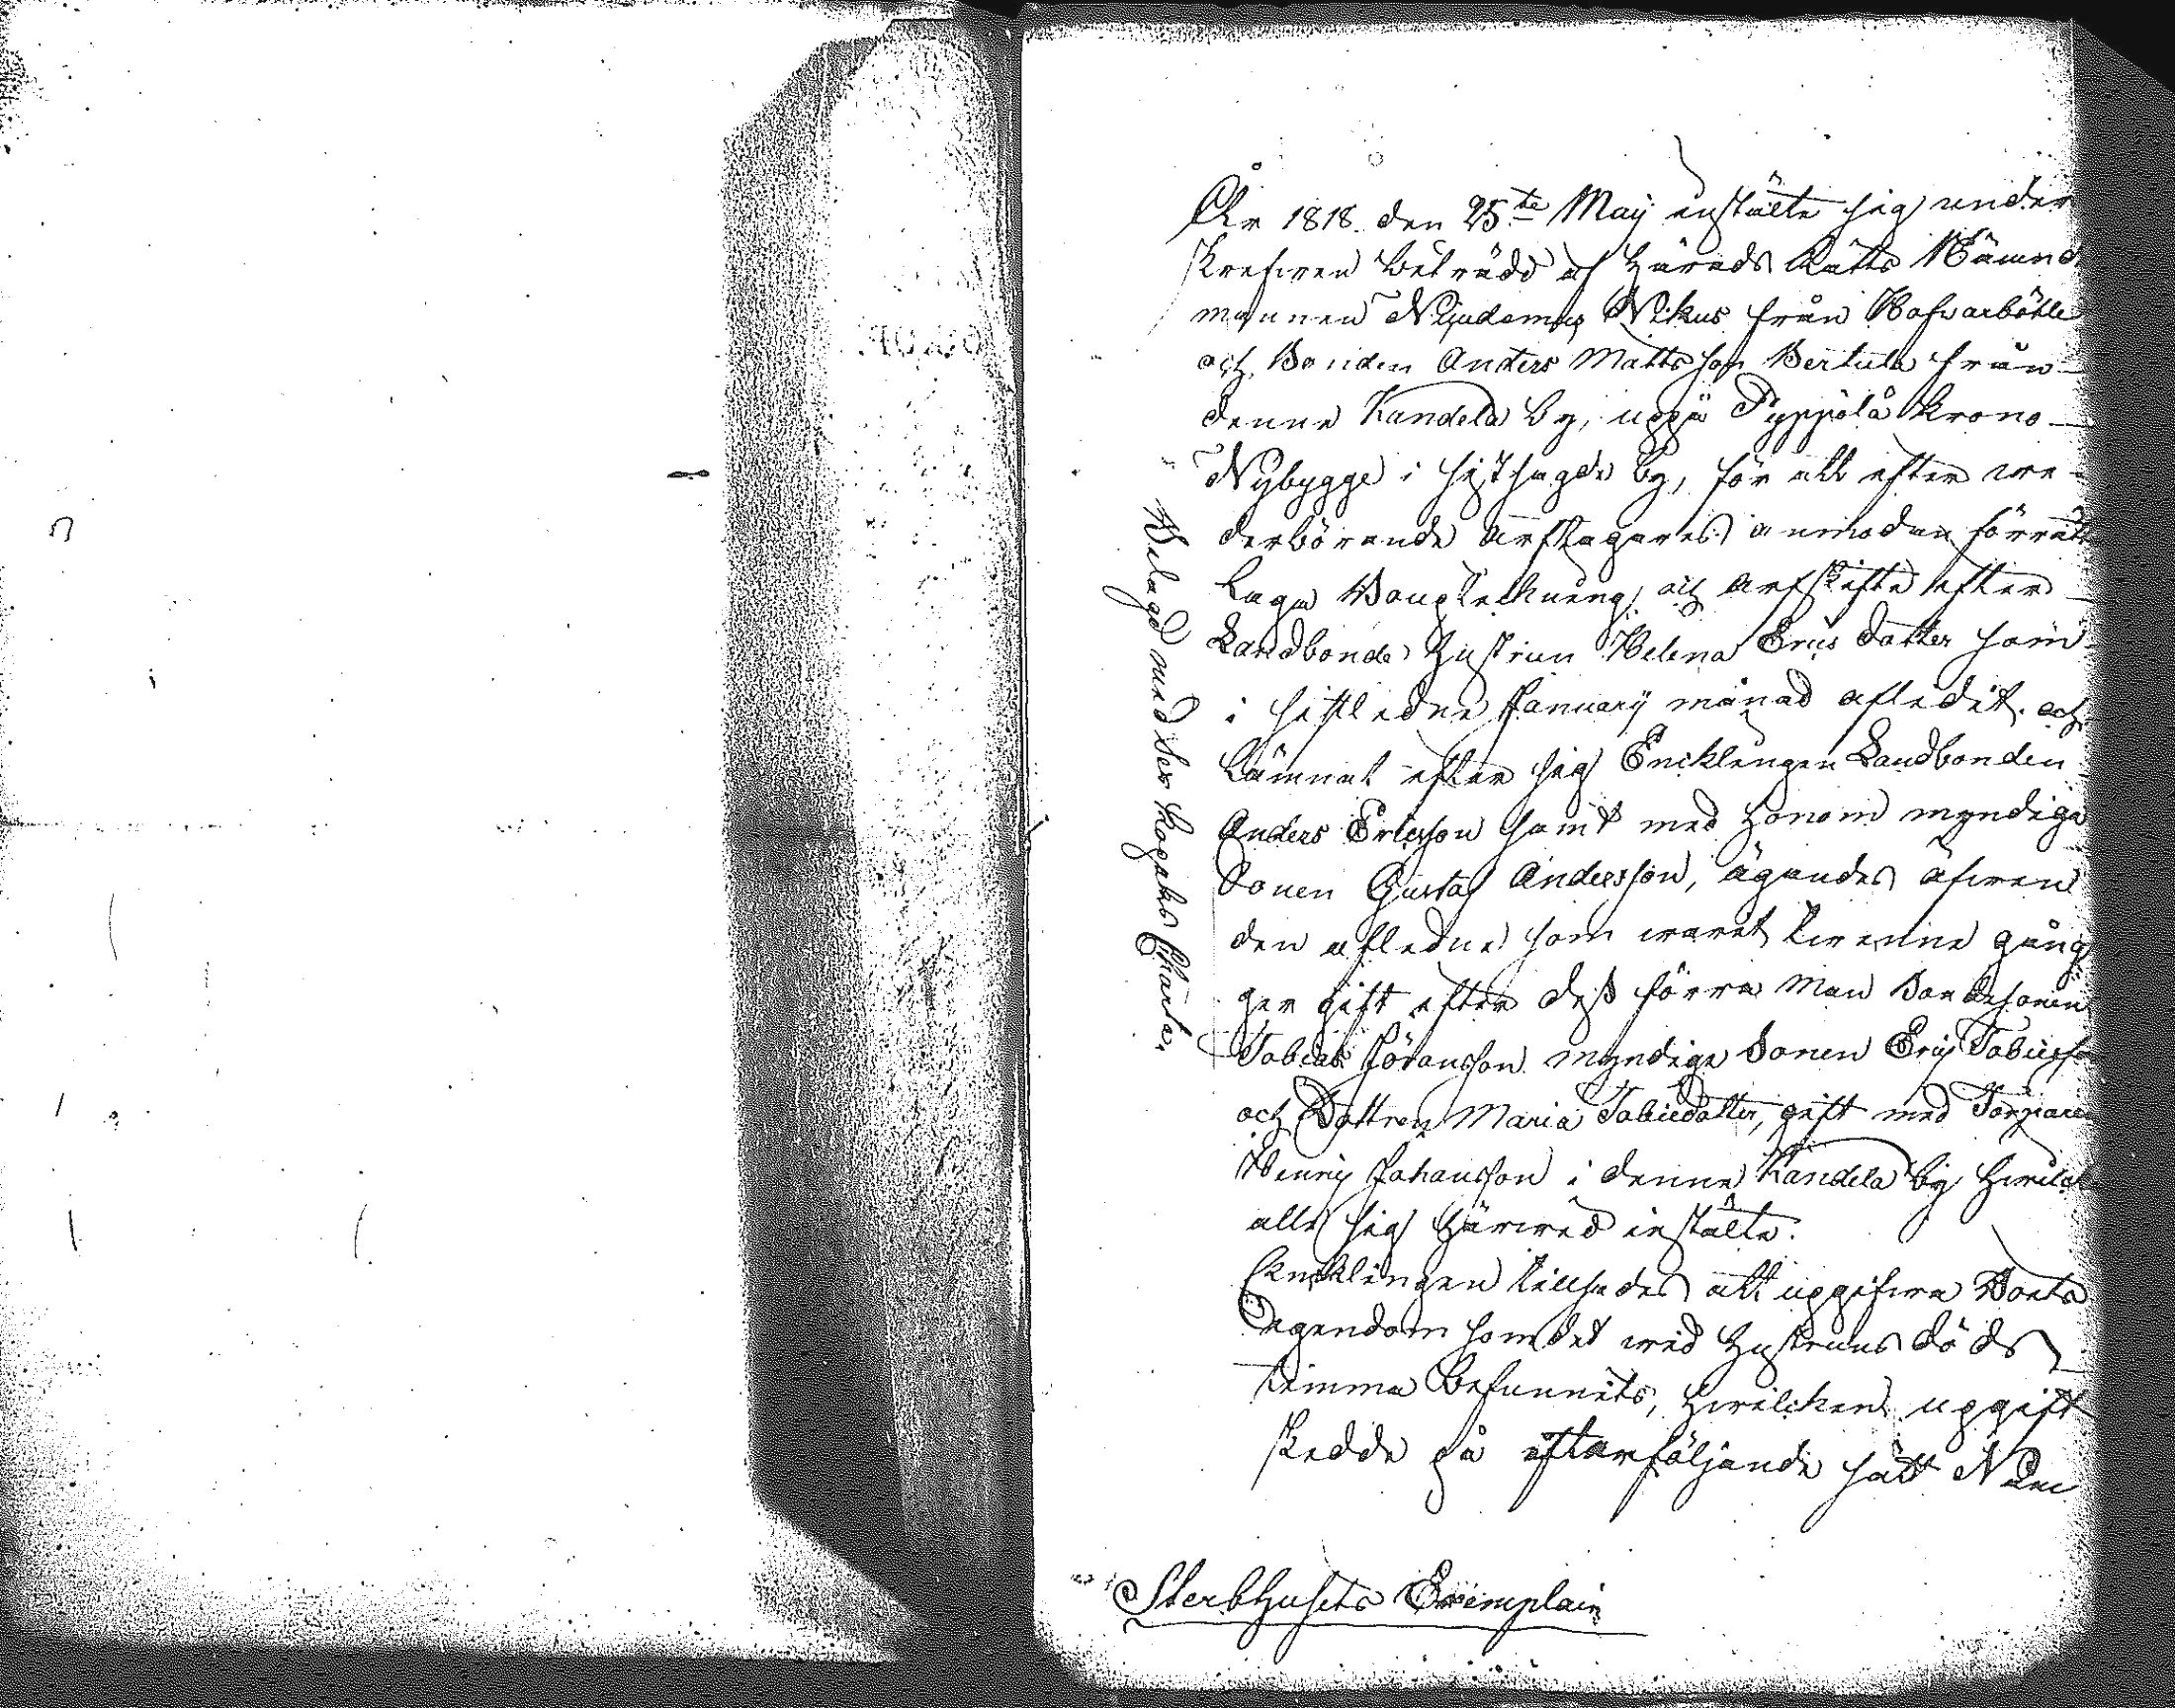 År 1818 den 25te Maij instälte sig under
skrefwen biträdd af Härads Rätts Nämnde
mannen Nicodemus Nikus från Hafvarbötle
och Bonden Anders Mattsson Bertula från
denne Kandela by, uppå Pyppölä Krono
Nybygge i sistsagde by, för att efter we-
derbörande arftagares anmodan förrätta
laga Bouptekning och arfskifte efter
Landbonde Hustrun Helena Erics dotter som
i sistledne January månad afledit, och
lämnat efter sig Encklingen Landbonden
Anders Ericsson samt med honom myndige
Sonen Gustaf Andersson, ägandes äfwen
den afledne som warit twenne gång
ger gift efter dess förra Man Bondesonen
Tobias Jöransson myndige Sonen Eric Tobiesson
och Dottren Maria Tobiedotter, gift med Torparen
Henric Johansson i denne Kandela by hwilcka
alla sig härwid instälte.
Encklingen tillsades att uppgifwa Boets
Egendom som det wid Hustruns döds
timma befunnits, hwilcken uppgift
skedde på efterföljande sätt Nem
Belagd med Charta.
Sterbhusets Exemplair